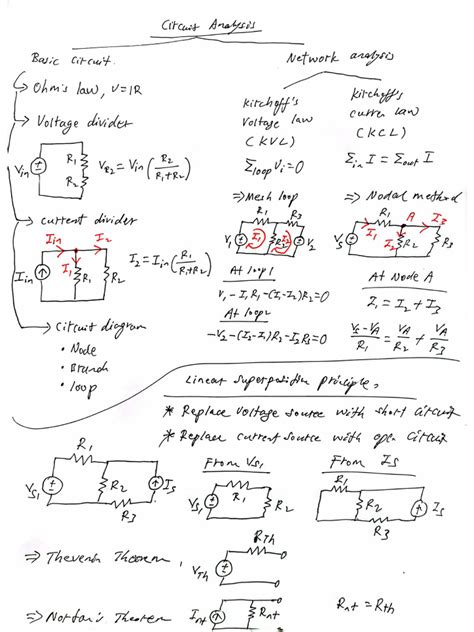 Circuit Analysis
Basic Circuit.
→ Ohm's law, V=IR
→ Voltage divider
Vin R1 R2 VR2 = Vin (R2/(R1+R2))
→ current divider
Iin I2 I1 Iin R1 R2 I2 = Iin (R1/(R1+R2))
→ Circuit diagram
• Node
• Branch
• loop
Network analysis
Kirchoff's
Voltage law
(KVL)
Σloop Vi = 0
⇒ Mesh loop
R1 R3
V1 I1 R2 I2 V2
At loop 1
V1 - I1R1 - (I1-I2)R2 = 0
At loop 2
-V2 - (I2-I1)R2 - I2R3 = 0
Kirchoff's
law
(KCL)
Σin I = Σout I
⇒ Nodal method
R1 A I3
Vs I1 I2 R2 R3
At Node A
I1 = I2 + I3
(Vs-VA)/R1 = VA/R2 + VA/R3
Linear Superposition principle,
* Replace Voltage source with short Circuit
* Replace current source with open Circuit
R1
Vs1 R2 Is
R3
From Vs1
Vs1 R1 R2
From Is
R1
R2 Is
R3
⇒ Thevenin Theorem,
RTh
VTh
⇒ Norton's Theorem
Int Rnt
Rnt = Rth